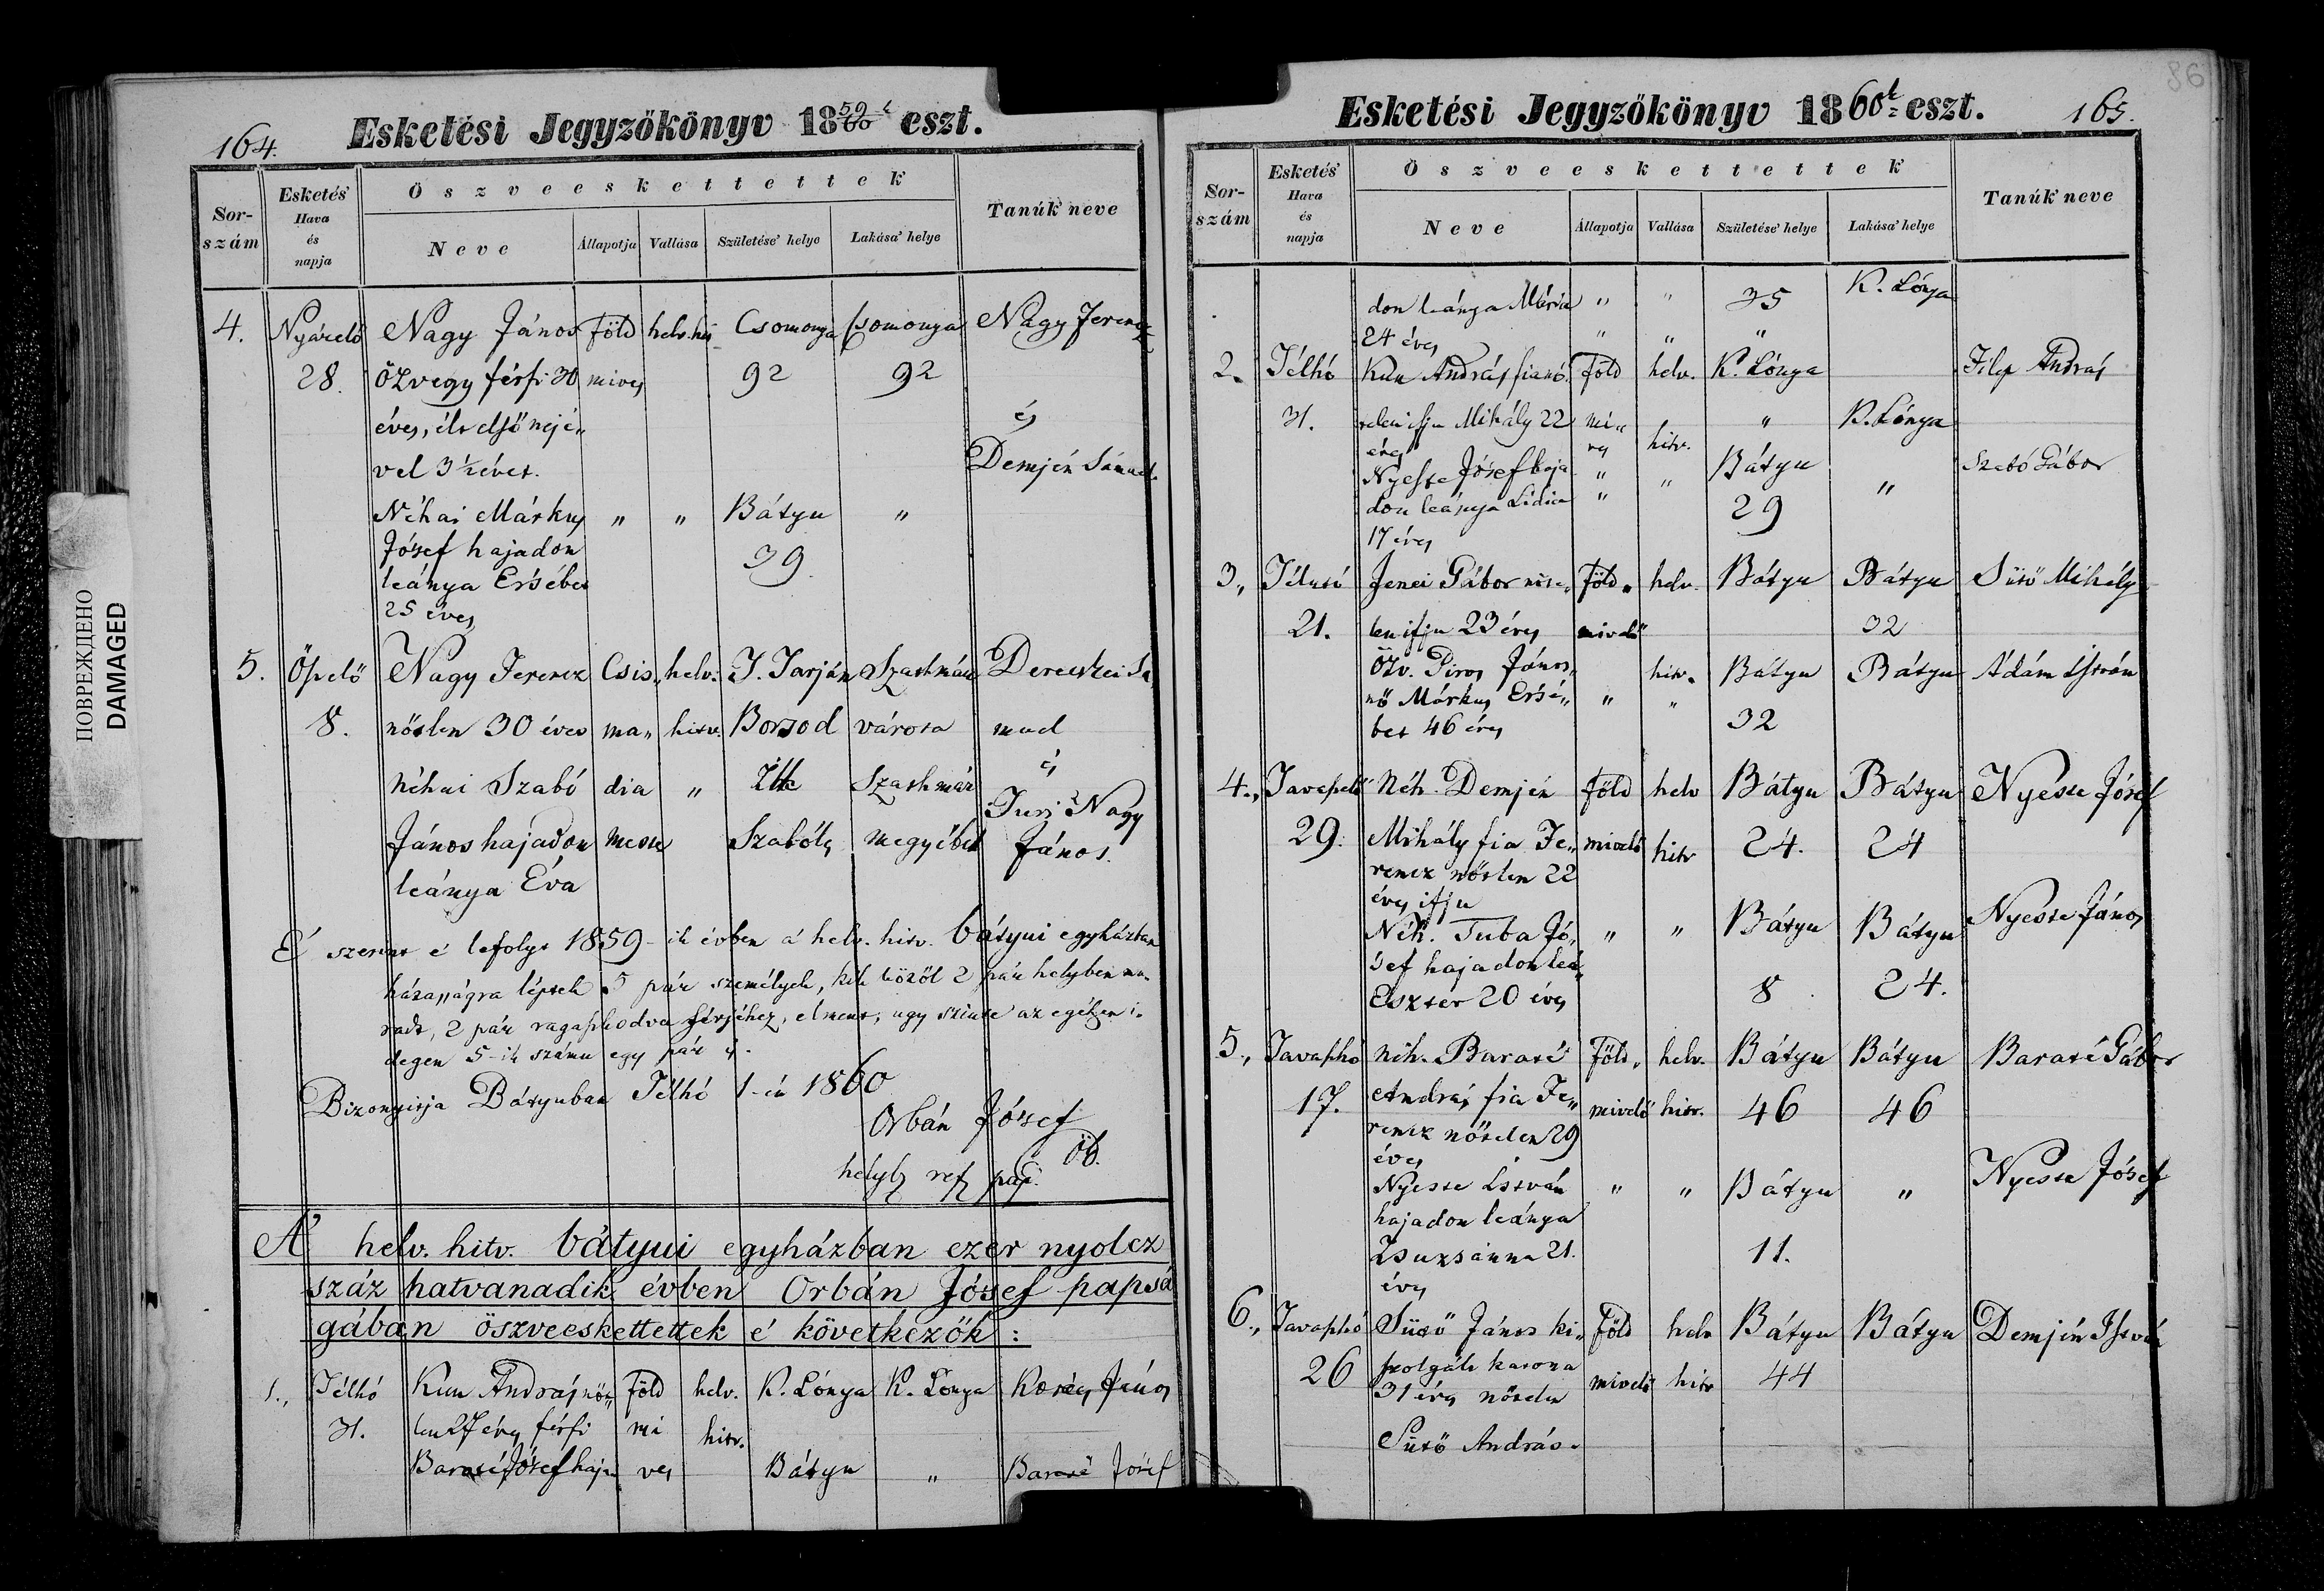 ПОВРЕЖДЕНО
DAMAGED
164. Esketési Jegyzőkönyv 1859 eszt.
Sor-szám Esketés' Hava és napja Öszveeskettettek Tanúk' neve
Neve Állapotja Vallása Születése' helye Lakása' helye
4. Nyárelő Nagy János Föld helv. hit Csomonya Csomonya Nagy Ferencz
28. özvegy férfi 30 mives 92 92
éves, élt első nejé„ és
vel 3½ évet. Demjén Sámuel
Néhai Márkus „ „ Bátyu „
József hajadon 39.
leánya Ersébet
25 éves
5. Őszelő Nagy Ferencz Csis„ helv. T. Tarján Szathmár Derecskei Sá
8. nőslen 30 éves ma„ hitv. Borsod városa muel
néhai Szabó dia „ Szathmár és
János hajadon meste Szabolcs megyéből Nagy János.
leánya Éva
E' szerint e' lefolyt 1859-ik évben a' helv. hitv. bátyui egyházban
házasságra léptek 5 pár személyek, kik közöl 2 pár helyben ma
radt, 2 pár ragaszkodva férjéhez, elment, ugy szinte az egészen i„
degen 5-ik számu egy pár is.
Bizonyitja Bátyuban Télhó 1-én 1860
Orbán József
helyb. ref. pap.
A' helv. hitv. bátyui egyházban ezer nyolcz
száz hatvanadik évben Orbán József papsá
gában öszveeskettettek e' következők:
1., Télhó Kun András nős„ Föld helv. K. Lónya K. Lónya János
31. len 27 éves férfi mi hitv.
Baraté József haja„ ves Bátyu „ Baraté József
86
Esketési Jegyzőkönyv 1860 eszt. 165.
Sor-szám Esketés' Hava és napja Öszveeskettettek Tanúk' neve
Neve Állapotja Vallása Születése' helye Lakása' helye
don leánya Mária „ „ 35 K. Lónya
24 éves „ „ „
2. Télhó Kun András fia nő„ Föld helv. K. Lónya Filep András
31. telen ifju Mihály 22 mi„ „ „ K. Lónya
éves ves hitv.
Nyeste József haja „ „ Bátyu „ Szabó Gábor
don leánya Lidia „ 29
17 éves
3., Télutó Jenei Gábor nőte„ Föld„ helv. Bátyu Bátyu Sütő Mihály
21. len ifju 23 éves mivelő 32
Özv. Piros János„ hitv. Bátyu Bátyu Ádám István
nő Márkus Ersé„ „ „ 32
bet 46 éves
4., Tavaszelő Néh. Demjén Föld helv Bátyu Bátyu Nyeste József
29. Mihály fia Fe„ mivelő hitv 24. 24
rencz nőslen 22
éves ifju
Néh. Tuba Jó„ „ „ Bátyu Bátyu Nyeste János
sef hajadon leá„
Eszter 20 éves 8 24.
5., Tavaszhó néh. Baraté Föld„ helv. Bátyu Bátyu Baraté Gábor
17. András fia Fe„ mivelő hitv. 46 46
rencz nőtelen 29
éves
Nyeste István „ „ Bátyu „ Nyeste József
hajadon leánya
Zsuzsánna 21. 11.
éves
6., Tavaszhó Sütő János ki„ Föld helv Bátyu Bátyu Demjén István
26 szolgált katona mivelő hitv 44
31 éves nőtelen
Sütő András.